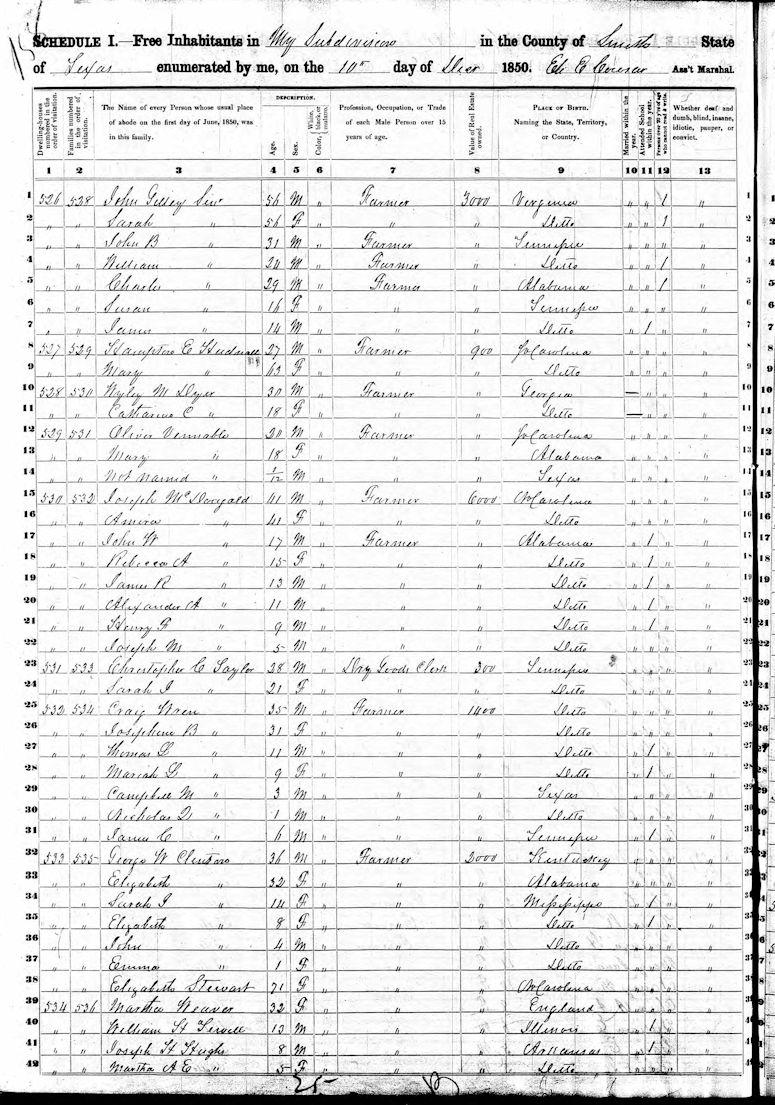 SCHEDULE I.—Free Inhabitants in My Subdivision in the County of Smith State
of Texas enumerated by me, on the 10th day of Decr 1850. Ass't Marshal.
Dwelling-houses numbered in the order of visitation.
Families numbered in the order of visitation.
The Name of every Person whose usual place of abode on the first day of June, 1850, was in this family.
DESCRIPTION.
Age.
Sex.
Color, White, black, or mulatto.
Profession, Occupation, or Trade of each Male Person over 15 years of age.
Value of Real Estate owned.
PLACE OF BIRTH. Naming the State, Territory, or Country.
Married within the year.
Attended School within the year.
Persons over 20 y'rs of age who cannot read & write.
Whether deaf and dumb, blind, insane, idiotic, pauper, or convict.
1 2 3 4 5 6 7 8 9 10 11 12 13
1 526 528 John Senr 56 M " Farmer 3000 Virginia " " 1 " 1
2 " " Sarah " 56 F " " " Ditto " " 1 " 2
3 " " John B " 31 M " Farmer " Tennessee " " " " 3
4 " " William " 24 M " Farmer " Ditto " " 1 " 4
5 " " Charles " 29 M " Farmer " Alabama " " 1 " 5
6 " " Susan " 16 F " " " Tennessee " " " " 6
7 " " James " 14 M " " " Ditto " 1 " " 7
8 527 529 Hampton E 27 M " Farmer 900 So Carolina " " " " 8
9 " " Mary " 63 F " " " Ditto " " " " 9
10 528 530 Wyley M Dyer 30 M " Farmer " Georgia — " " " 10
11 " " Catharine C " 18 F " " " Ditto — " " " 11
12 529 531 Oliver Vennable 20 M " Farmer " So Carolina " " " " 12
13 " " Mary " 18 F " " " Alabama " " " " 13
14 " " Not named " 1/12 M " " " Texas " " " " 14
15 530 532 Joseph McDougald 41 M " Farmer 6000 No Carolina " " " " 15
16 " " Amira " 41 F " " " Ditto " " " " 16
17 " " John W " 17 M " Farmer " Alabama " 1 " " 17
18 " " Rebecca A " 15 F " " " Ditto " 1 " " 18
19 " " James R " 13 M " " " Ditto " 1 " " 19
20 " " Alexander A " 11 M " " " Ditto " 1 " " 20
21 " " Henry F " 9 M " " " Ditto " 1 " " 21
22 " " Joseph M " 5 M " " " Ditto " " " " 22
23 531 533 Christopher C Taylor 28 M " Dry Goods Clerk 300 Tennessee " " " " 23
24 " " Sarah J " 21 F " " " Ditto " " " " 24
25 532 534 Craig Wren 35 M " Farmer 1400 Ditto " " " " 25
26 " " Josephine B " 31 F " " " Ditto " " " " 26
27 " " Thomas L " 11 M " " " Ditto " 1 " " 27
28 " " Mariah L " 9 F " " " Ditto " 1 " " 28
29 " " Campbell M " 3 M " " " Texas " " " " 29
30 " " Nicholas Q " 1 M " " " Ditto " " " " 30
31 " " James C " 6 M " " " Tennessee " 1 " " 31
32 533 535 George W Clinton 36 M " Farmer 2000 Kentuckey " " " " 32
33 " " Elizabeth " 32 F " " " Alabama " " " " 33
34 " " Sarah J " 14 F " " " Mississippi " 1 " " 34
35 " " Elizabeth " 8 F " " " Ditto " 1 " " 35
36 " " John " 4 M " " " Ditto " " " " 36
37 " " Emma " 1 F " " " Ditto " " " " 37
38 " " Elizabeth Stewart 71 F " " " No Carolina " " " " 38
39 534 536 Martha Weaver 32 F " " " England " " " " 39
40 " " William H 13 M " " " Illinois " 1 " " 40
41 " " Joseph H 8 M " " " Arkansas " 1 " " 41
42 " " Martha A E " 5 F " " " Ditto " " " " 42
25